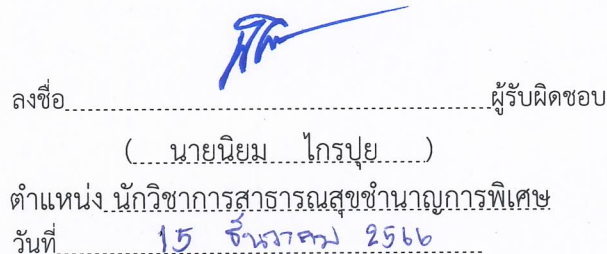 ลงชื่อ........................................................ผู้รับผิดชอบ
(....นายนิยม....ไกรปุย......)
ตำแหน่ง นักวิชาการสาธารณสุขชำนาญการพิเศษ
วันที่ 15 ธันวาคม 2566